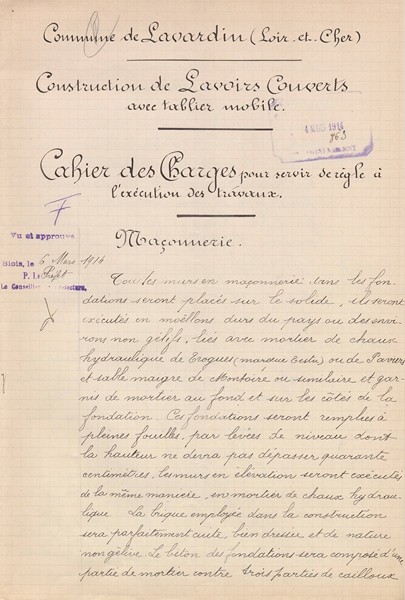 Commune de Lavardin (Loir-et-Cher)
Construction de Lavoirs Couverts
avec tablier mobile.
4 MARS 1914
763
Cahier des Charges pour servir de règle à
l'exécution des travaux.
Vu et approuvé
Blois, le 6 Mars 1914
P. Le Préfet
Le Conseiller de Préfecture,
Maçonnerie.
Tous les murs en maçonnerie dans les fon-
dations seront placés sur le solide, ils seront
exécutés en moëllons durs du pays ou des envi-
rons non gélifs, liés avec mortier de chaux
hydraulique de Trogues (marque Estu) ou de Paviers
et sable maigre de Montoire ou similaire et gar-
nis de mortier au fond et sur les côtés de la
fondation. Ces fondations seront remplies à
pleines fouilles, par levées de niveau dont
la hauteur ne devra pas dépasser quarante
centimètres, les murs en élévation seront exécutés
de la même manière, en mortier de chaux hydrau-
lique. La brique employée dans la construction
sera parfaitement cuite, bien dressée et de nature
non gélive. Le béton des fondations sera composé d'une
partie de mortier contre trois parties de cailloux